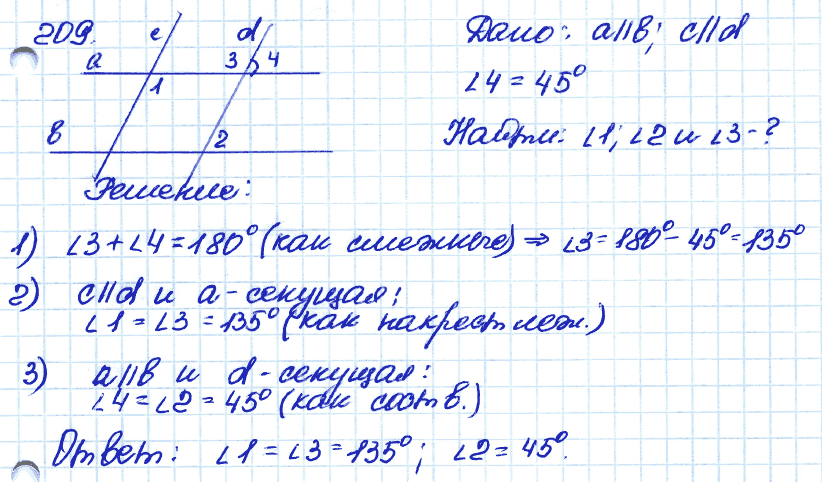 209. c d Дано: a||в; c||d
a 3 4
∠4 = 45°
1
в 2 Найти: ∠1; ∠2 и ∠3 - ?
Решение:
1) ∠3 + ∠4 = 180° (как смежные) ⇒ ∠3 = 180° - 45° = 135°
2) c||d и a - секущая;
∠1 = ∠3 = 135° (как накрест леж.)
3) a||в и d - секущая:
∠4 = ∠2 = 45° (как соотв.)
Ответ: ∠1 = ∠3 = 135°; ∠2 = 45°.